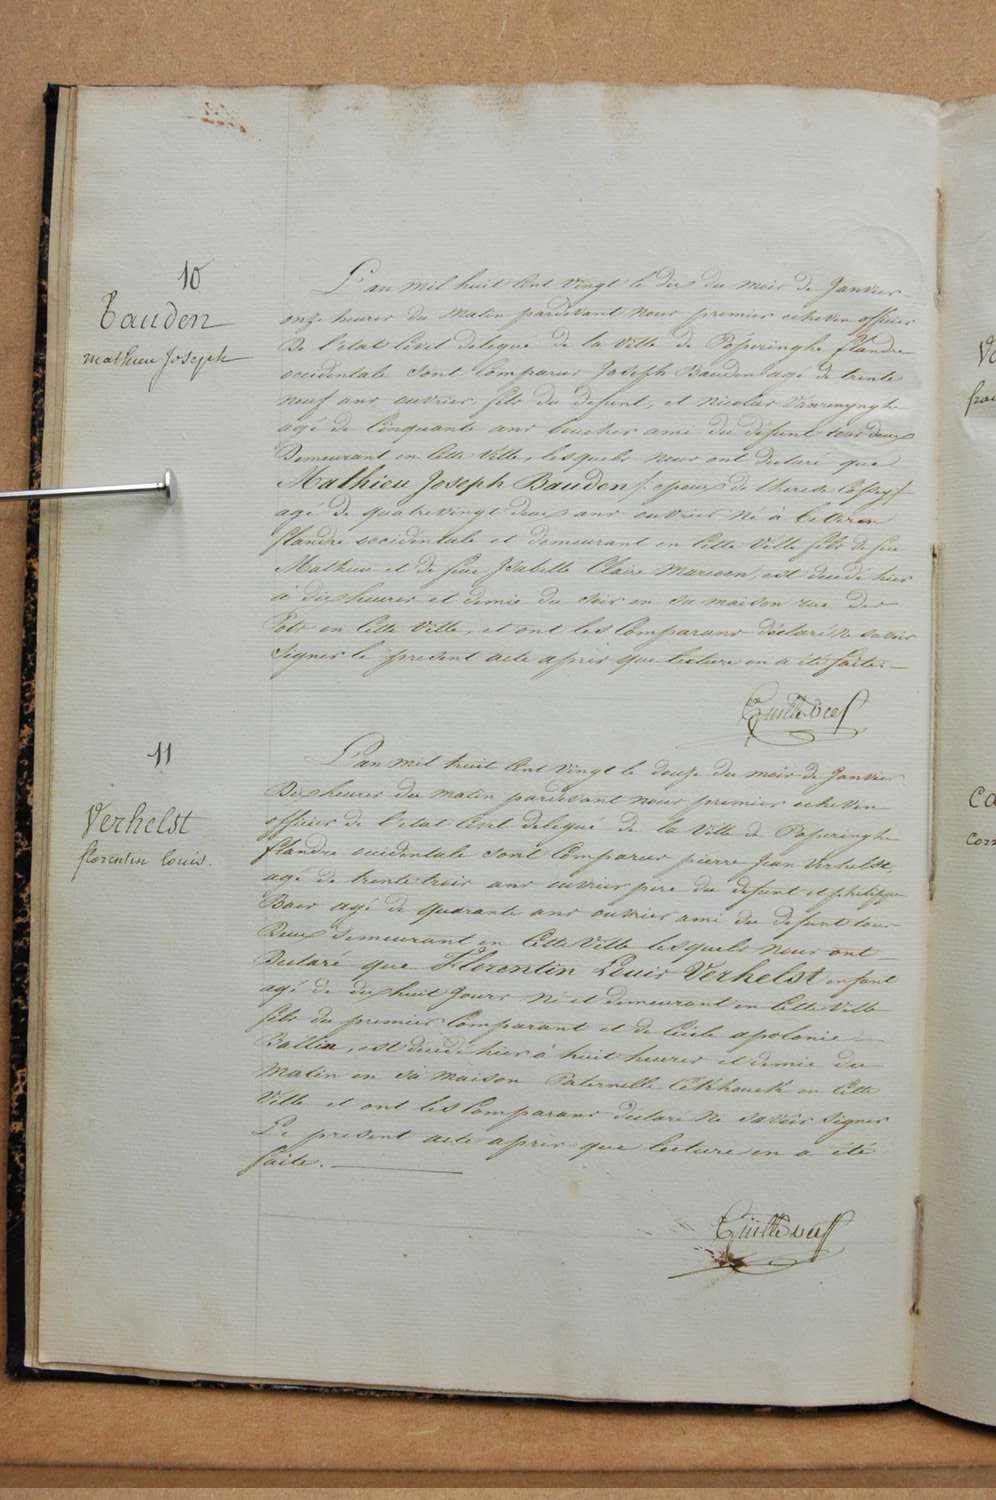 10
Bauden
mathieu Joseph
L'an mil huit cent vingt le dix du mois de Janvier
onze heures du matin pardevant nous premier echevin officier
De l'etat Civil delegué de la ville de Poperinghe flandre
occidentale sont Comparus Joseph Bauden agé de trente
neuf ans ouvrier fils du defunt, et Nicolas Vanrenynghe
agé de Cinquante ans boucher ami du défunt tous deux
Demeurant en Cette Ville, lesquels nous ont declaré que
Mathieu Joseph Bauden epoux de therese
agé de quatrevingt deux ans ouvrier né à
flandre occidentale et demeurant en Cette Ville fils de feu
Mathieu et de feue Isabelle Claire est decedé hier
à dix heures et demie du soir en sa maison rue des
Pots en Cette Ville, et ont les Comparans déclaré ne savoir
signer le present acte après que lecture en a été faite.
11
Verhelst
florentin louis.
L'an mil huit Cent vingt le douze du mois de Janvier
Dix heures du matin pardevant nous premier echevin
officier de l'etat Civil delegué de la Ville de Poperinghe
flandre occidentale sont Comparus pierre Jean Verhelst,
agé de trente trois ans ouvrier père du defunt et philippe
Baes agé de quarante ans ouvrier ami du defunt tous
Deux demeurant en Cette Ville lesquels nous ont
Declaré que Florentin Louis Verhelst enfant
agé de dix huit Jours né et demeurant en Cette Ville
fils du premier Comparant et de Cécile apolonie
Ballin, est decedé hier à huit heures et demie du
Matin en sa maison Paternelle en Cette
Ville et ont les Comparans déclaré ne savoir signer
Le present acte après que lecture en a été
faite.